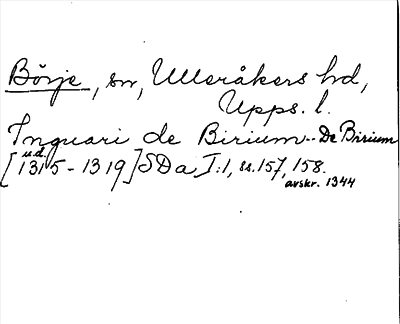 Börje, sn, Ulleråkers hd,
Upps. l.
Inguari de Birium -- De Birium
[u.d. 1315-1319] SDa I:1, ss. 157, 158.
avskr. 1344